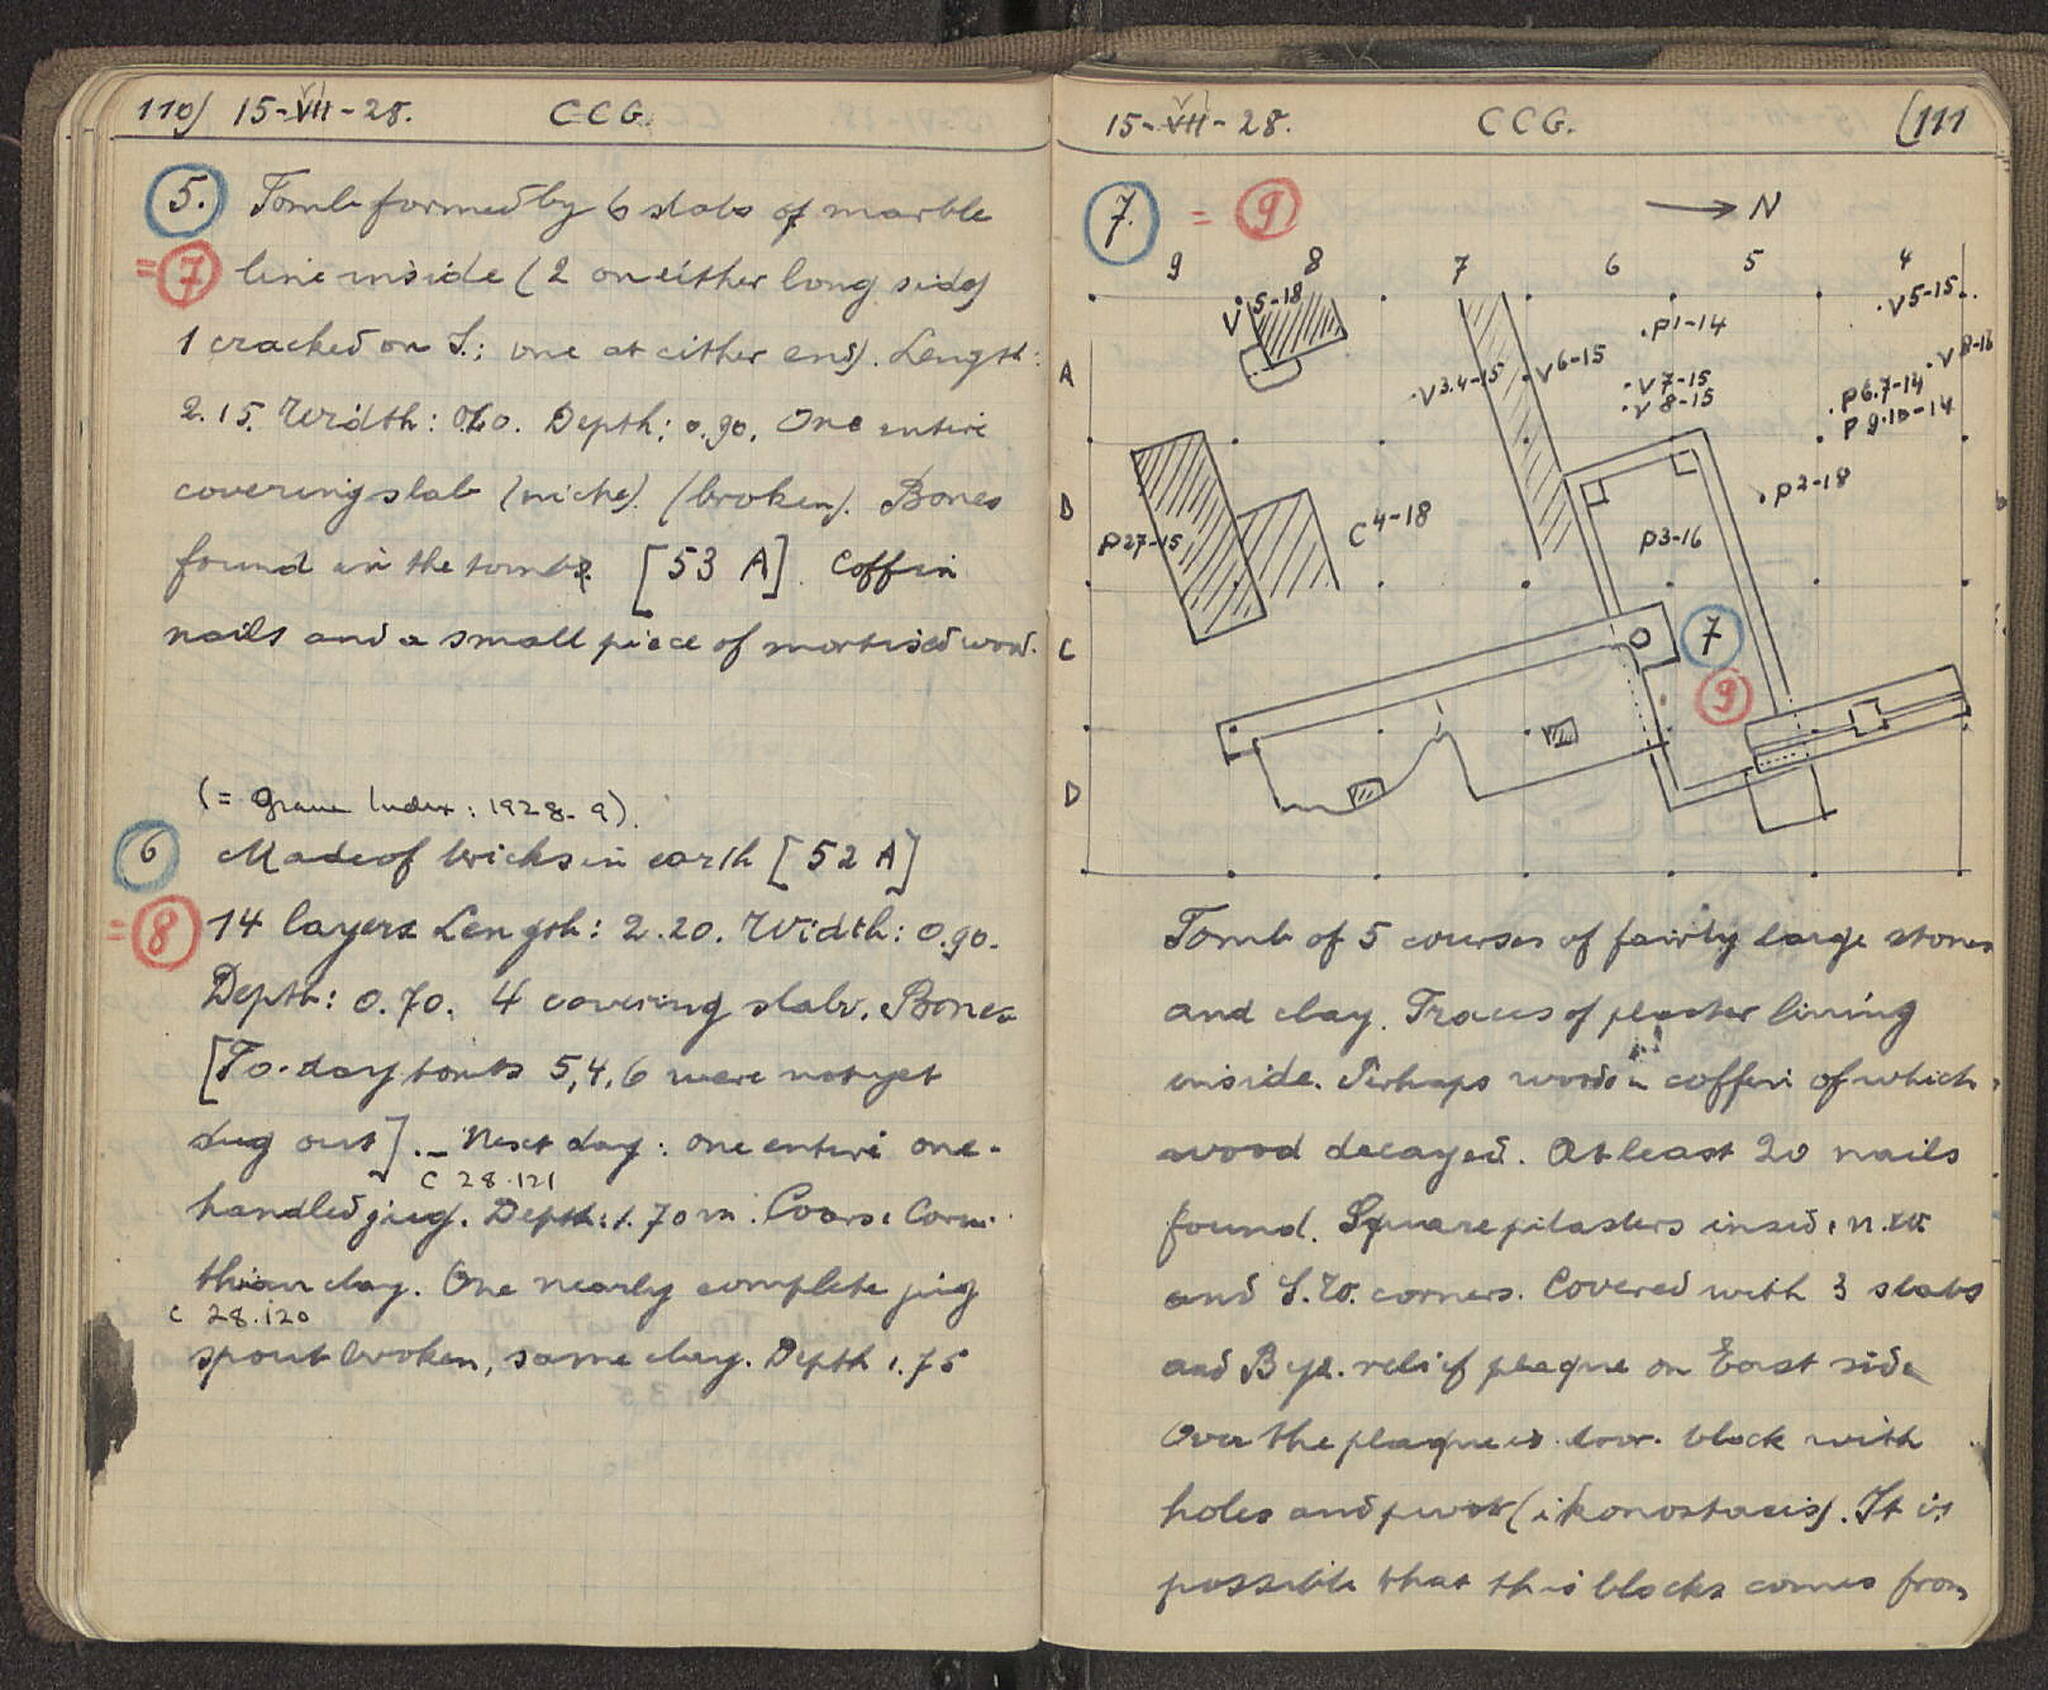 110) 15-VII-28. CCG.
5. Tomb formed by 6 slabs of marble
=7 line inside (2 on either long side)
1 cracked on S.; one at either end). Length:
2.15. Width: 0.60. Depth: 0.90. One entire
covering slab (niche). (broken). Bones
found in the tomb. [53 A]. Coffin
nails and a small piece of mortised wood.
(= Grave Index: 1928-9).
6 Made of bricks in earth [52 A]
=8 14 layers Length: 2.20. Width: 0.90.
Depth: 0.70. 4 covering slabs. Bones
[To-day tombs 5, 4, 6 were not yet
dug out]. _ Next day: one entire one-
C 28.121
handled jug. Depth: 1.70 m. Coarse Corin-
thian clay. One nearly complete jug
C 28.120
spout broken, same clay. Depth 1.75
15-VII-28. CCG. (111
7. = 9 → N
9 8 7 6 5 4
V5-18
P1-14
V5-15
A
V3.4-15
V6-15
V7-15
V8-15
V8-16
P6.7-14
P9.10-14
B
P27-15
C4-18
P3-16
P2-18
C
7
9
D
Tomb of 5 courses of fairly large stones
and clay. Traces of plaster lining
inside. Perhaps wooden coffin of which
wood decayed. At least 20 nails
found. Square pilasters inside n.w.
and S.W. corners. Covered with 3 slabs
and Byz. relief plaque on East side
Over the plaque is door block with
holes and pivot (ikonostasis). It is
possible that this blocks comes from